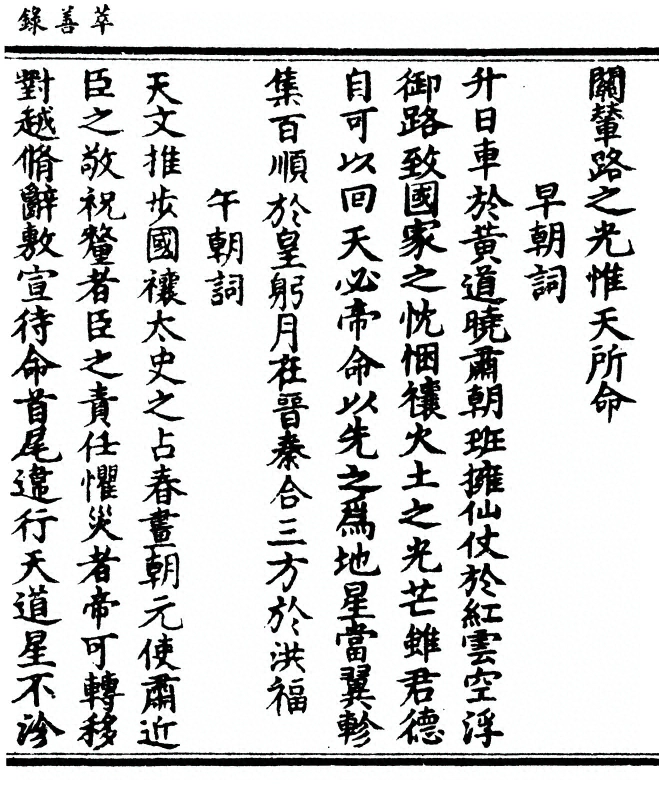 錄善萃
闢輦路之光惟天所命
早朝詞
升日車於黃道曉肅朝班擁仙仗於紅雲空浮
御路致國家之忱悃禳火土之光芒雖君德
自可以回天必帝命以先之為地星當翼軫
集百順於皇躬月在晉秦合三方於洪福
午朝詞
天文推步國禳太史之占春晝朝元使肅近
臣之敬祝釐者臣之責任懼災者帝可轉移
對越脩辭敷宣待命首尾違行天道星不沴